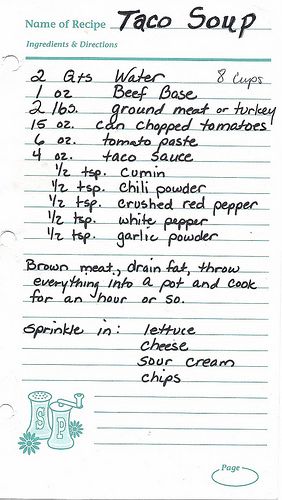 Name of Recipe Taco Soup
Ingredients & Directions
2 Qts Water 8 Cups
1 oz Beef Base
2 lbs. ground meat or turkey
15 oz. can chopped tomatoes
6 oz. tomato paste
4 oz. taco sauce
1/2 tsp. cumin
1/2 tsp. chili powder
1/2 tsp. crushed red pepper
1/2 tsp. white pepper
1/2 tsp. garlic powder
Brown meat, drain fat, throw
everything into a pot and cook
for an hour or so.
Sprinkle in: lettuce
cheese
sour cream
chips
S P
Page